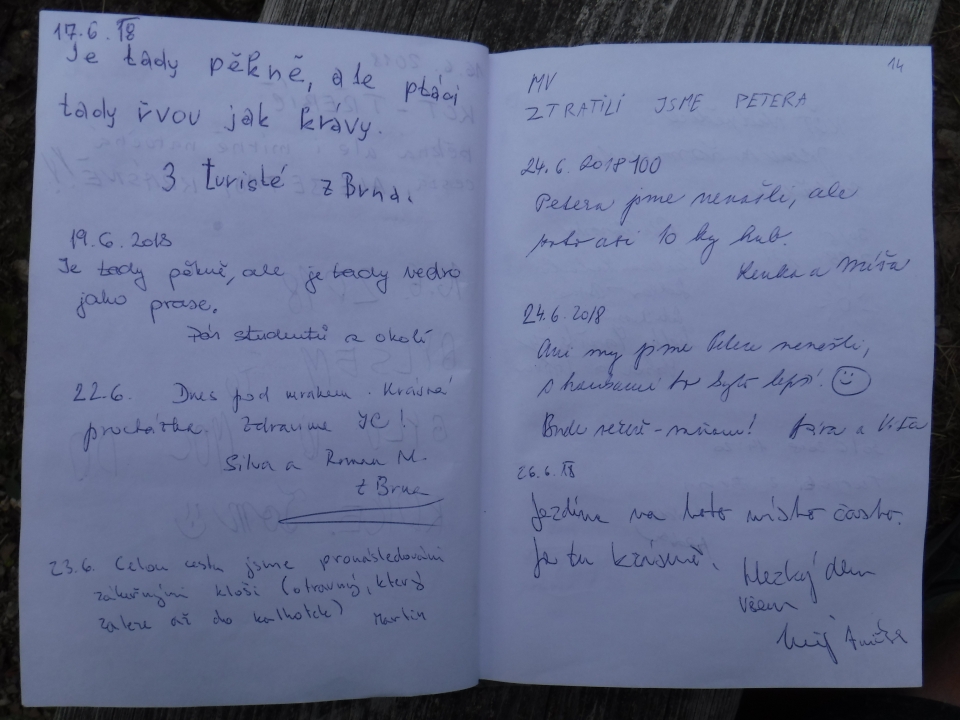 17.6. 18
Je tady pěkně, ale ptáci
tady řvou jak krávy.
3 turisté z Brna.
19.6.2018
Je tady pěkně, ale je tady vedro
jako prase.
Pár studentů z okolí
22.6. Dnes pod mrakem. Krásná
procházka. Zdravíme JC!
Silva a Roman M.
z Brna
23.6. Celou cestu jsme pronásledováni
zákeřnými kloši (otravný, který
zaleze až do kalhotek) Martin
14
MV
ZTRATILI JSME PETERA
24.6.2018 100
Petera jsme nenašli, ale
zato asi 10 kg hub.
Lenka a Míša
24.6.2018
Ani my jsme Petera nenašli,
s houbami to bylo lepší! ☺
Bude
a Víťa
26.6. 18
Jezdíme na toto místo často.
Je tu krásně.
Hezký den
všem